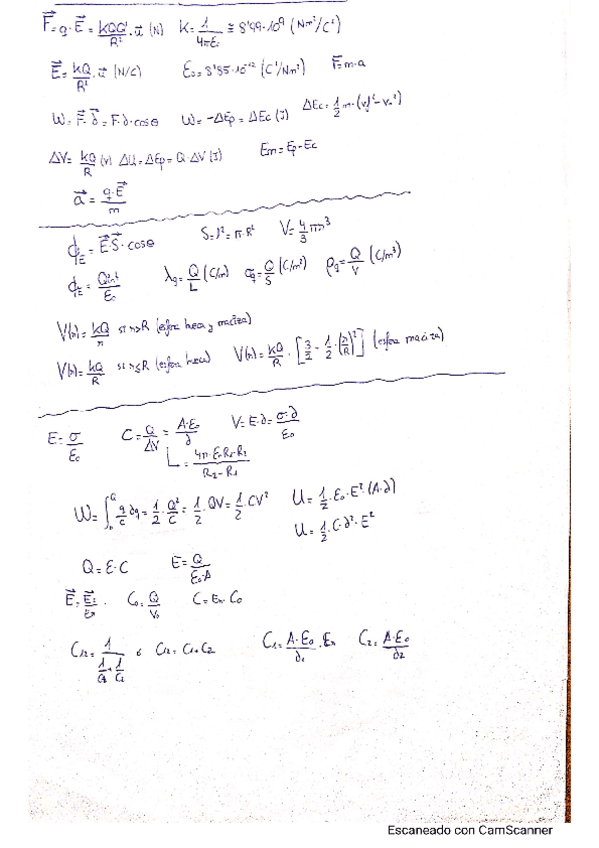 F⃗ = q·E⃗ = kQQ'/R²·u⃗ (N) K = 1/4πε₀ ≅ 8'99·10⁹ (Nm²/C²)
E⃗ = kQ/R²·u⃗ (N/C) ε₀ = 8'85·10⁻¹² (C²/Nm²) F⃗ = m·a
W = F⃗·d⃗ = F·d·cosθ W = -ΔEp = ΔEc (J) ΔEc = 1/2 m·(vf²-v₀²)
ΔV = kQ/R (V) ΔU = ΔEp = Q·ΔV (J) Em = Ep - Ec
a⃗ = q·E⃗/m
ϕE = E⃗·S⃗·cosθ S = l² = π·R² V = 4/3 πr³
ϕE = Qint/ε₀ λq = Q/L (C/m) σq = Q/S (C/m²) ρq = Q/V (C/m³)
V(r) = kQ/r si r>R (esfera hueca y maciza)
V(r) = kQ/R si r≤R (esfera hueca) V(r) = kQ/R · [3/2 - 1/2·(r/R)²] (esfera maciza)
E = σ/ε₀ C = Q/ΔV = A·ε₀/d V = E·d = σ·d/ε₀
= 4π·ε₀·R₁·R₂/R₂-R₁
W = ∫ q/c dq = 1/2·Q²/C = 1/2·QV = 1/2·CV² U = 1/2·ε₀·E²·(A·d)
U = 1/2·C·d²·E²
Q = ε·C E = Q/ε₀·A
C₀ = Q/V₀ C = εr·C₀
C₁₂ = 1/(1/C₁+1/C₂) ó C₁₂ = C₁+C₂ C₁ = A·ε₀/d₁·εr C₂ = A·ε₀/d₂
Escaneado con CamScanner